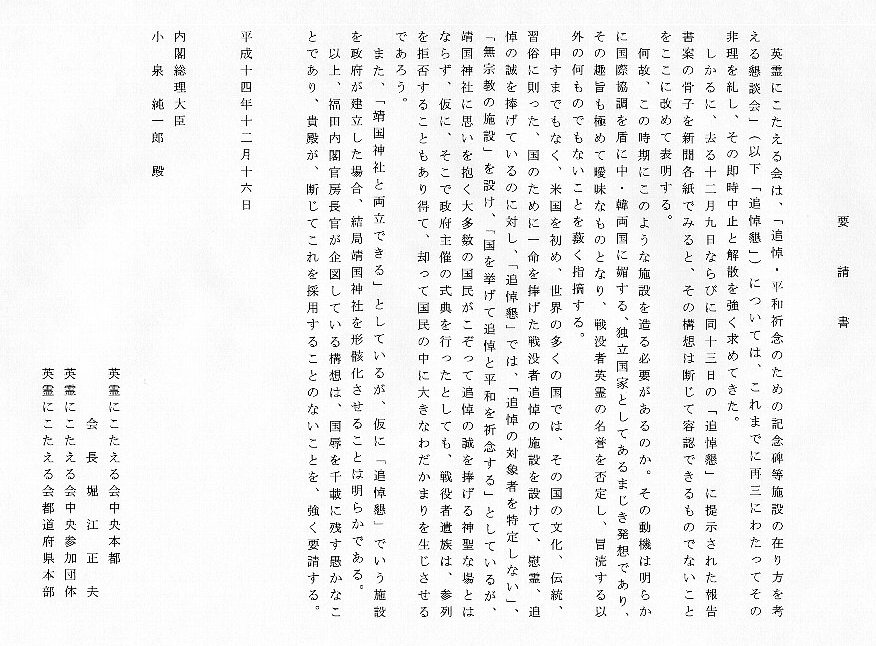 要請書
英霊にこたえる会は、「追悼・平和祈念のための記念碑等施設の在り方を考
える懇談会」（以下「追悼懇」）については、これまでに再三にわたってその
非理を糺し、その即時中止と解散を強く求めてきた。
しかるに、去る十二月九日ならびに同十三日の「追悼懇」に提示された報告
書案の骨子を新聞各紙でみると、その構想は断じて容認できるものでないこと
をここに改めて表明する。
何故、この時期にこのような施設を造る必要があるのか。その動機は明らか
に国際協調を盾に中・韓両国に媚する、独立国家としてあるまじき発想であり、
その趣旨も極めて曖昧なものとなり、戦没者英霊の名誉を否定し、冒涜する以
外の何ものでもないことを厳く指摘する。
申すまでもなく、米国を初め、世界の多くの国では、その国の文化、伝統、
習俗に則った、国のために一命を捧げた戦没者追悼の施設を設けて、慰霊、追
悼の誠を捧げているのに対し、「追悼懇」では、「追悼の対象者を特定しない」、
「無宗教の施設」を設け、「国を挙げて追悼と平和を祈念する」としているが、
靖国神社に思いを抱く大多数の国民がこぞって追悼の誠を捧げる神聖な場とは
ならず、仮に、そこで政府主催の式典を行ったとしても、戦役者遺族は、参列
を拒否することもあり得て、却って国民の中に大きなわだかまりを生じさせる
であろう。
また、「靖国神社と両立できる」としているが、仮に「追悼懇」でいう施設
を政府が建立した場合、結局靖国神社を形骸化させることは明らかである。
以上、福田内閣官房長官が企図している構想は、国辱を千載に残す愚かなこ
とであり、貴殿が、断じてこれを採用することのないことを、強く要請する。
平成十四年十二月十六日
内閣総理大臣
小泉純一郎 殿
英霊にこたえる会中央本部
会長 堀江正夫
英霊にこたえる会中央参加団体
英霊にこたえる会都道府県本部